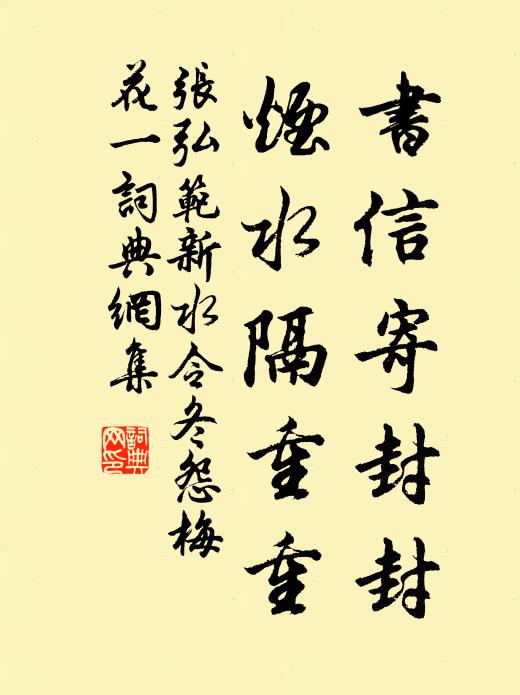 書信寄封封
煙水隔重重
張弘範新水令冬怨梅
花一詞典網集
詞典
网印